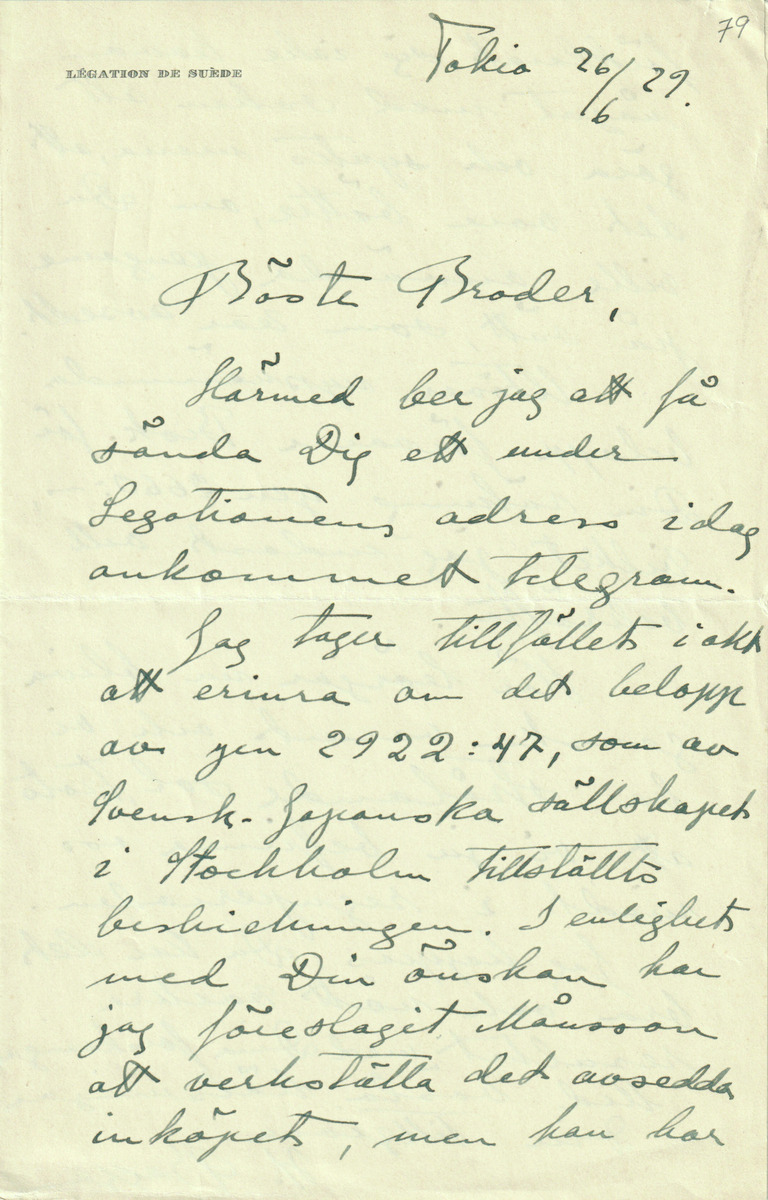 79
LÉGATION DE SUÈDE
Tokio 26/6 29.
Bäste Broder,
Härmed ber jag att få
sända Dig ett under
Legationens adress idag
ankommet telegram.
Jag tager tillfället i akt
att erinra om det belopp
av yen 2922:47, som av
Svensk-Japanska sällskapet
i Stockholm tillställts
beskickningen. I enlighet
med Din önskan har
jag föreslagit Månsson
att verkställa det avsedda
inköpet, men han har